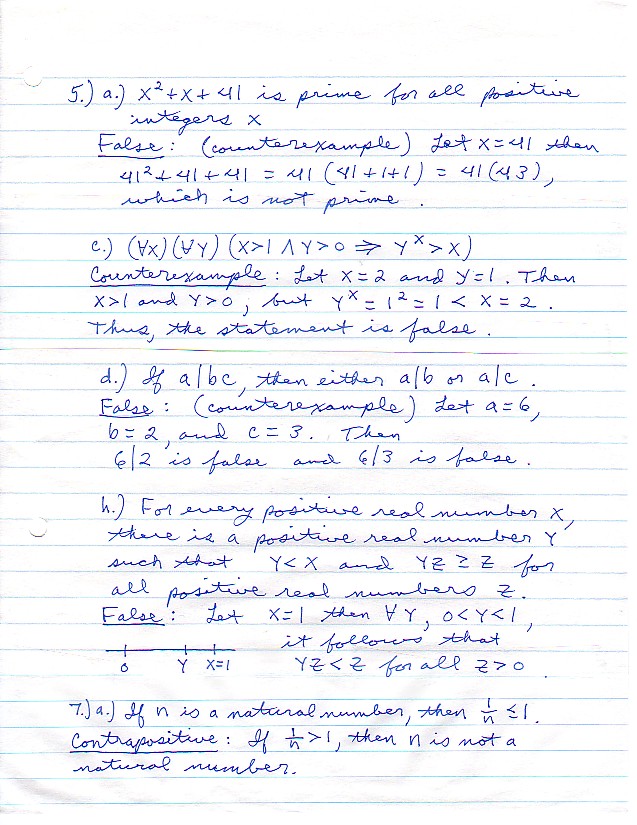 5.) a.) x² + x + 41 is prime for all positive
integers x
False: (counterexample) Let x = 41 then
41² + 41 + 41 = 41 (41 + 1 + 1) = 41 (43),
which is not prime.
c.) (∀x)(∀y) (x>1 ∧ y>0 ⇒ y^x > x)
Counterexample: Let x = 2 and y = 1. Then
x>1 and y>0, but y^x = 1² = 1 < x = 2.
Thus, the statement is false.
d.) If a|bc, then either a|b or a|c.
False: (counterexample) Let a = 6,
b = 2, and c = 3. Then
6|2 is false and 6|3 is false.
h.) For every positive real number x,
there is a positive real number y
such that y < x and yz ≥ z for
all positive real numbers z.
False: Let x = 1 then ∀y, 0<y<1,
it follows that
0 y x=1 yz < z for all z > 0.
7.) a.) If n is a natural number, then 1/n ≤ 1.
Contrapositive: If 1/n > 1, then n is not a
natural number.